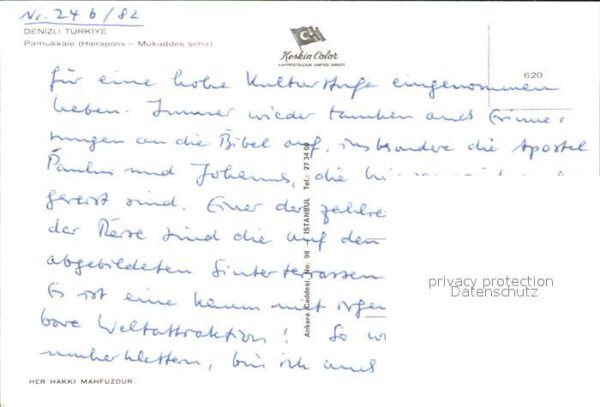 Nr. 246/82
DENIZLI TÜRKIYE
Pamukkale (Hierapolis – Mukaddes şehir)
Keskin Color
KARTPOSTALCILIK LIMITED ŞIRKETI
620
für eine hohe Kulturstufe eingenommen
haben. Immer wieder tauchen auch Erinne-
rungen an die Bibel auf, insbesondere die Apostel
Paulus und Johannes, die
gereist sind. Einer der
der Reise sind die auf den
abgebildeten Sinterterrassen
Es ist eine kaum mit
bare Weltattraktion! So
umherklettern, bin ich auch
Ankara Caddesi, No. 98 İSTANBUL Tel.: 27 34 09
privacy protection
Datenschutz
HER HAKKI MAHFUZDUR.